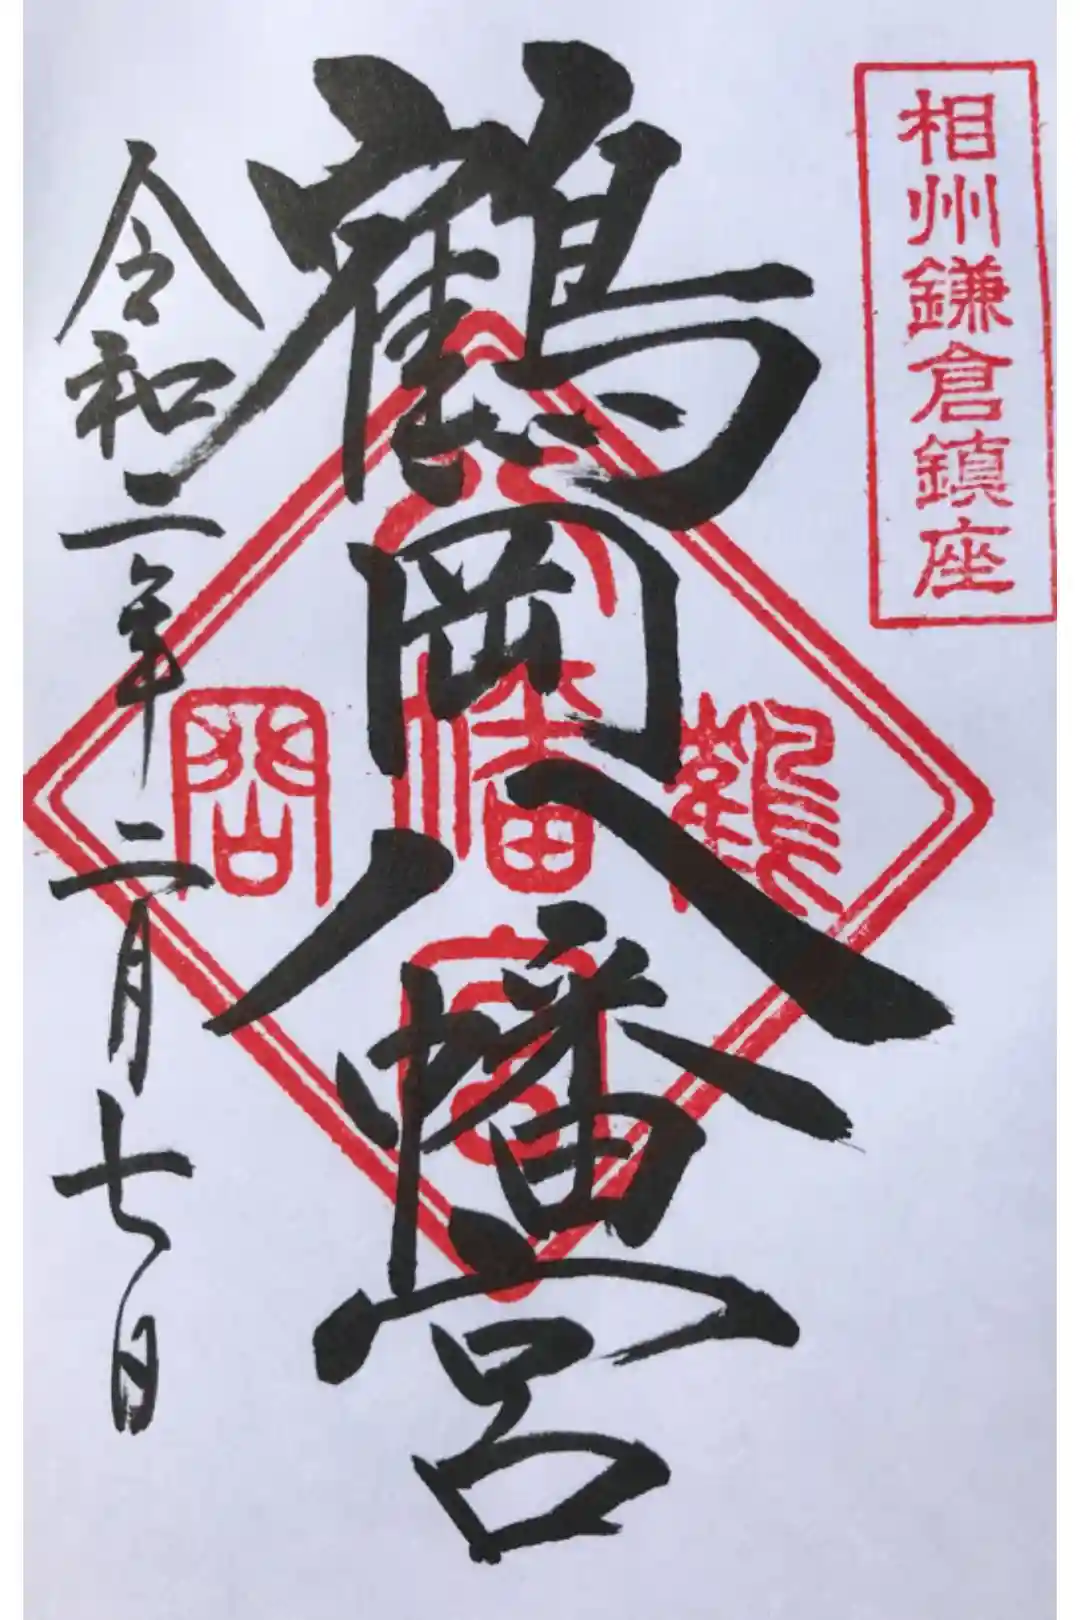 相州鎌倉鎮座
鶴岡八幡宮
令和二年二月七日
八
鶴幡岡
宮